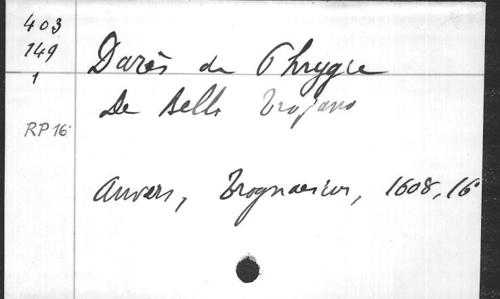 403
149
1
RP 16°
Darès de Phrygie
De Bello Trojano
Anvers, Trognaesius, 1608, 16°